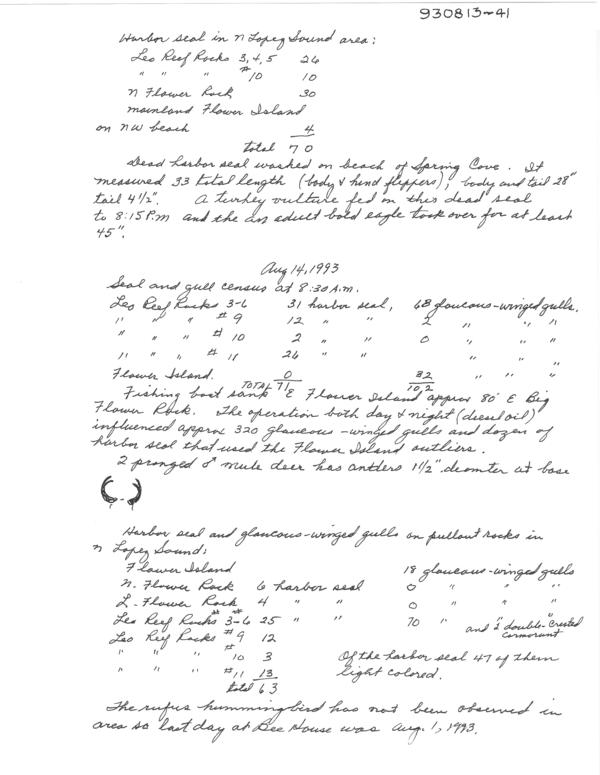 930813-41
Harbor seal in N Lopez Sound area:
Leo Reef Rocks 3, 4, 5 26
" " " #10 10
N Flower Rock 30
mainland Flower Island
on NW beach 4
total 70
Dead harbor seal washed on beach of Spring Cove. It
measured 33 total length (body & hind flippers); body and tail 28"
tail 4 1/2". A turkey vulture fed on this dead seal
to 8:15 P.m and the an adult bald eagle took over for at least
45".
Aug 14, 1993
Seal and gull census at 8:30 A.m.
Leo Reef Rocks 3-6 31 harbor seal, 68 glaucous-winged gulls.
" " " #9 12 " " 2 " " "
" " " #10 2 " " 0 " " "
" " " #11 26 " "
Flower Island. 0 32 " " "
TOTAL 71 102
Fishing boat sank E Flower Island approx 80' E Big
Flower Rock. The operation both day & night (diesel oil)
influenced approx 320 glaucous-winged gulls and dozen of
harbor seal that used the Flower Island outliers.
2 pronged ♂ mule deer has antlers 1 1/2" diamter at base
Harbor seal and glaucous-winged gulls on pullout rocks in
N Lopez Sound:
Flower Island 18 glaucous-winged gulls
N. Flower Rock 6 harbor seal 0 " " "
L. Flower Rock 4 " " 0 " " "
Leo Reef Rocks #3-#6 25 " " 70 " " " and 2 double-crested cormorant
Leo Reef Rocks #9 12
" " " #10 3 Of the harbor seal 47 of them
" " " #11 13 light colored.
total 63
The rufus hummingbird has not been observed in
area so last day at Bee House was Aug. 1, 1993.